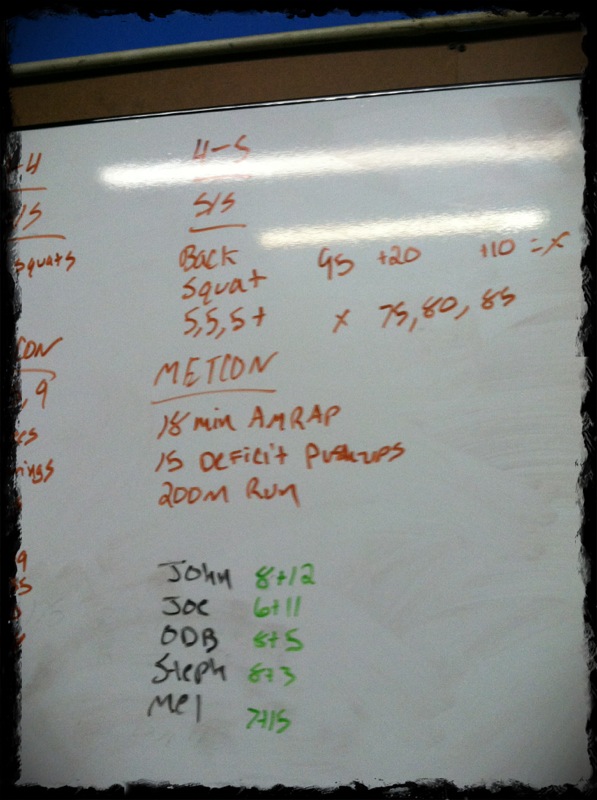 -4
4-5
/5
5/5
squats
Back 95 +20 +10 = x
Squat
5,5,5+ x 75, 80, 85
CON
METCON
, 9
18 min AMRAP
15 Deficit Pushups
ings
200m Run
9
John 8+12
Joe 6+11
ODB 8+5
Steph 8+3
Mel 7+15